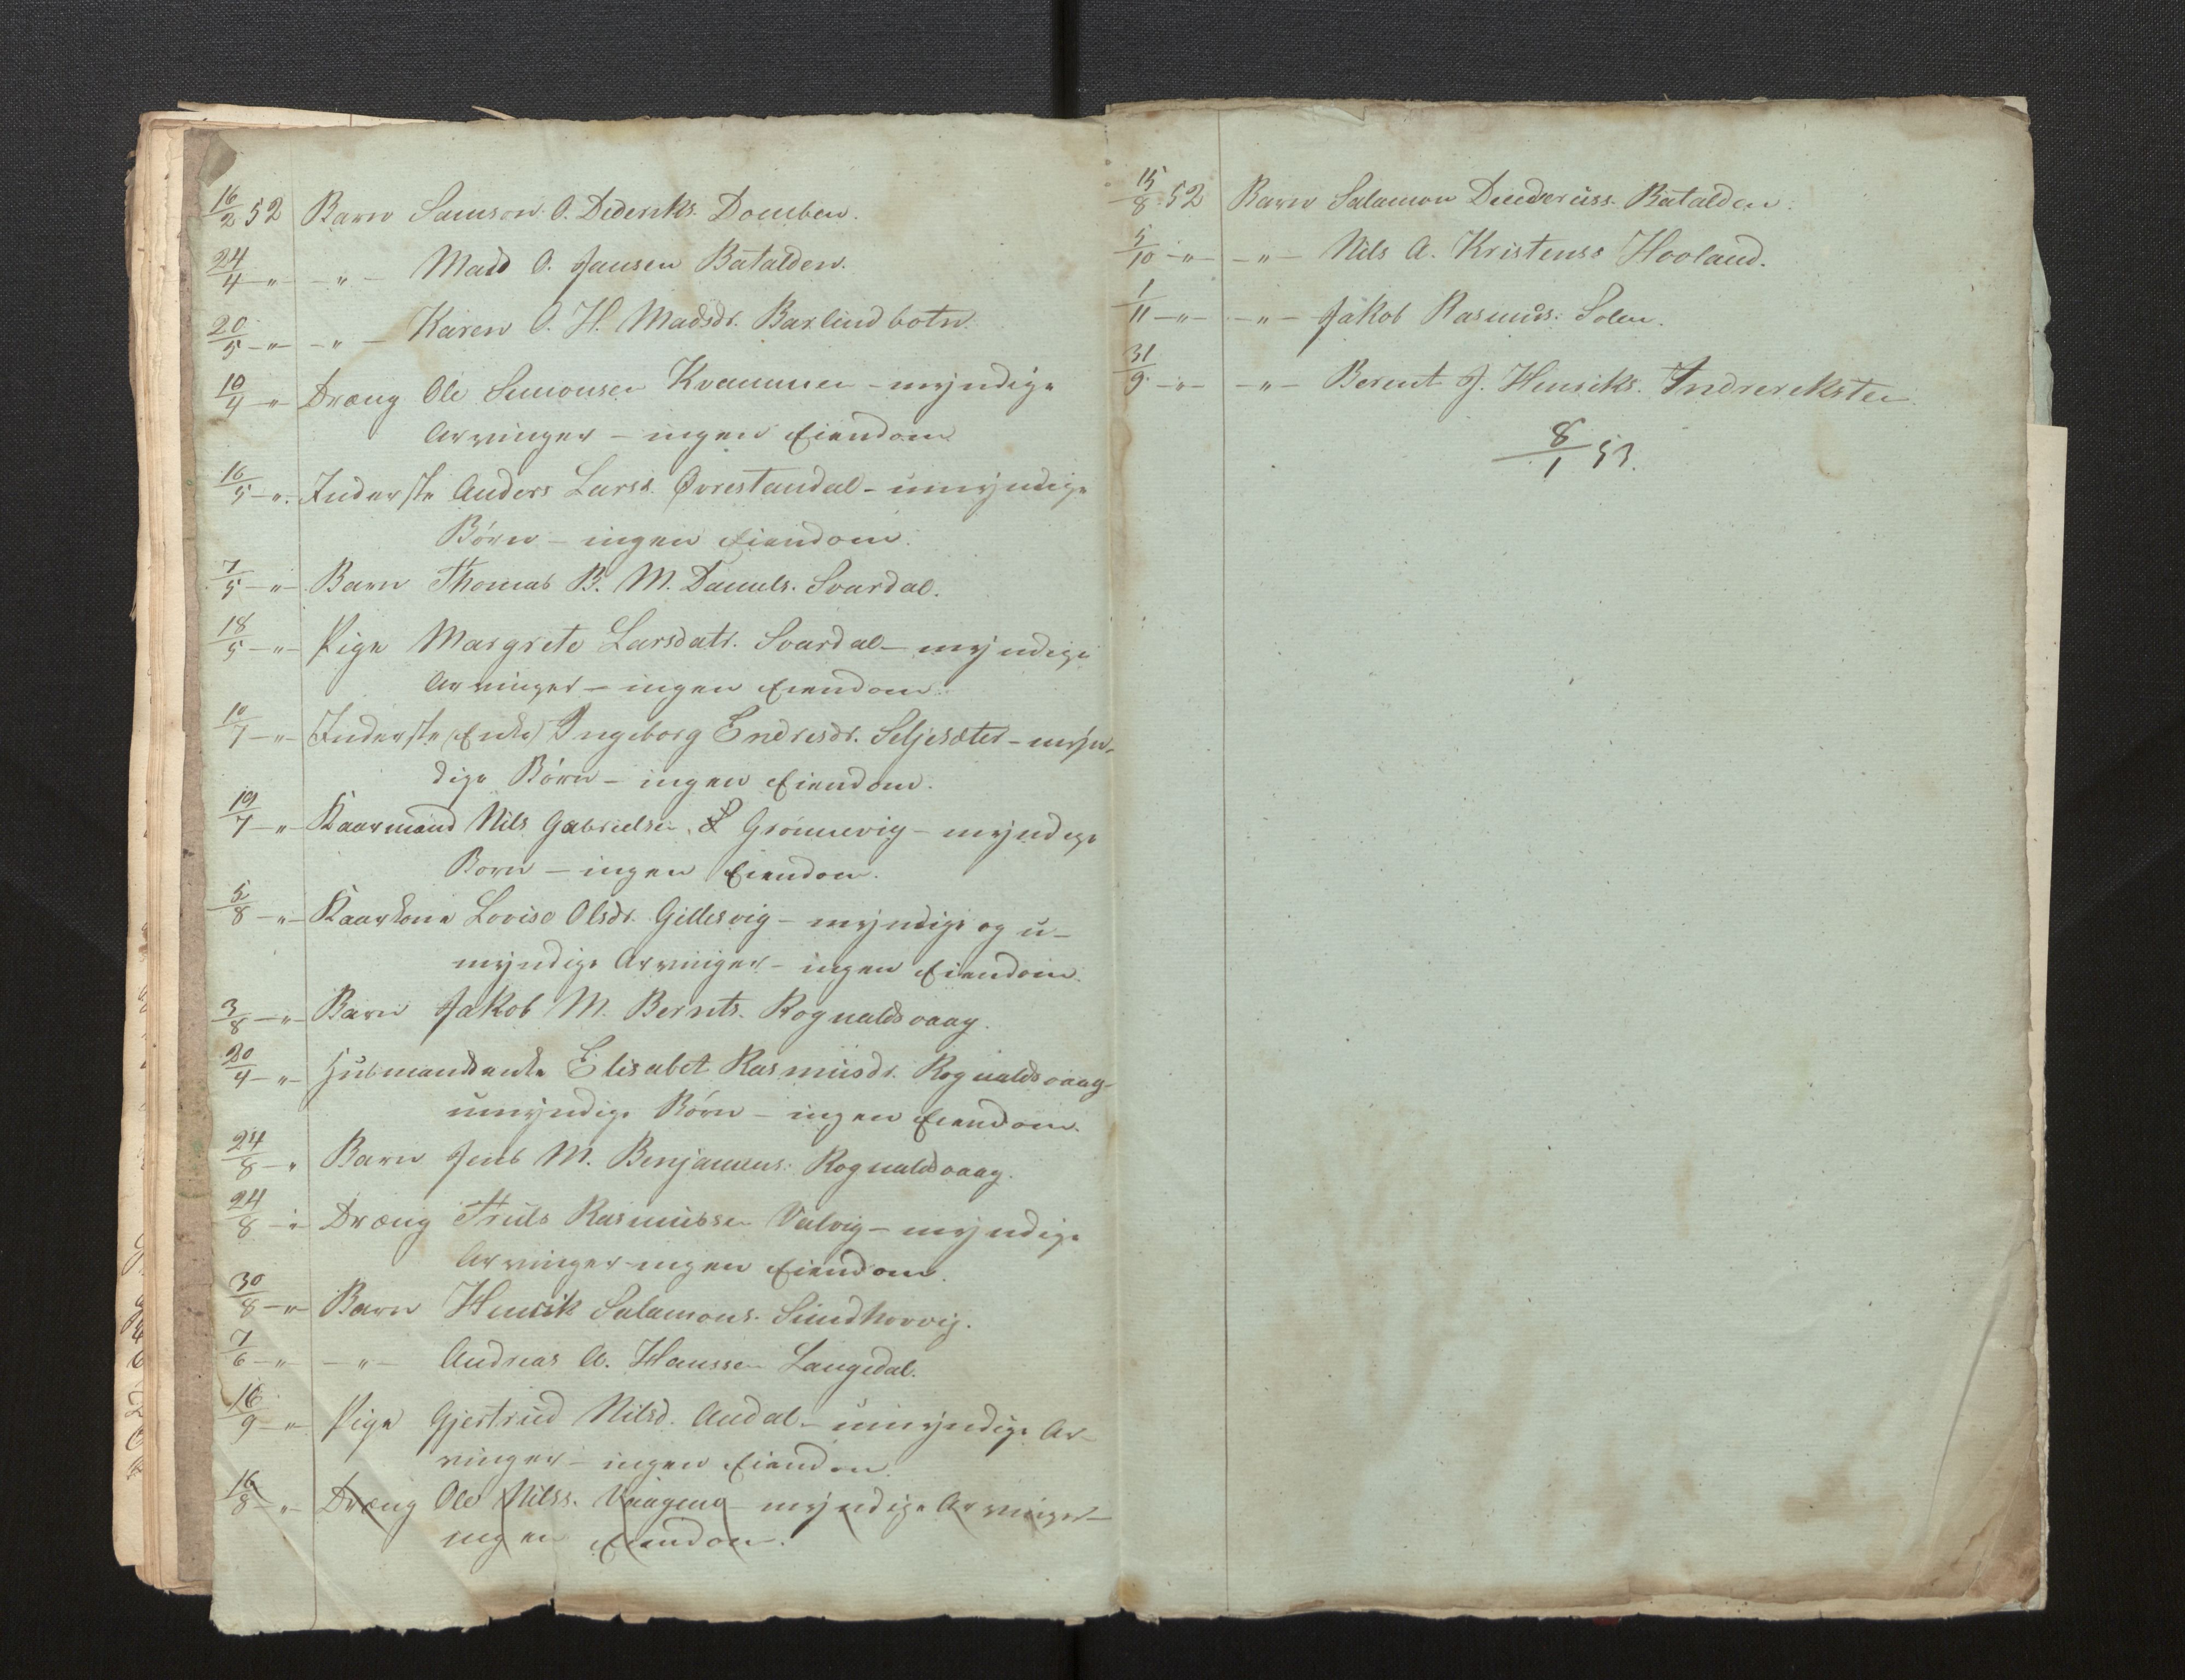 16/2 52 Barn Samson O. Dederiks. Domben.
24/4 -"- -"- Mads O. Jansen Batalden.
20/5 -"- -"- Karen O. H. Madsdr. Barlindbotn.
10/4 -"- Dræng Ole Simonsen Kvammen - myndige
Arvinger - ingen Eiendom
16/5 -"- Inderste Anders Larss. Øvrestandal - umyndige
Børn - ingen Eiendom.
7/5 -"- Barn Thomas B. M. Daniels. Svardal.
18/5 -"- Pige Margrete Larsdatr. Svardal - myndige
Arvinger - ingen Eiendom.
10/7 -"- Inderste (Enke) Ingeborg Endresdr. Seljesæter - myn-
dige Børn - ingen Eiendom.
19/7 -"- Kaarmand Nils Gabrielsen Grønnevig - myndige
Born - ingen Eiendom.
5/8 -"- Kaarkone Lovise Olsdr. Gillesvig - myndige og u-
myndige Arvinger - ingen Eiendom.
3/8 -"- Barn Jakob M. Bernts. Rognaldsvaag.
20/4 -"- Husmandsenke Elisabet Rasmusdr. Rognaldsvaag-
umyndige Børn - ingen Eiendom.
24/8 -"- Barn Jens M. Benjamins. Rognaldsvaag.
24/8 -"- Dræng Truls Rasmussen Valvig - myndige
Arvinger - ingen Eiendom.
30/8 -"- Barn Henrik Salamons. Sindhovvig.
7/6 -"- -"- Andreas A. Hanssen Langedal.
16/9 -"- Pige Gjertrud Nilsd. Andal - umyndige Ar-
vinger - ingen Eiendom.
16/8 -"- Dræng Ole Nilss. Vaagene - myndige Arvinger -
ingen Eiendom.
15/8 52 Barn Salamon Dinderuss. Batalden.
5/10 -"- -"- Nils A. Kristenss Hovland.
1/11 -"- -"- Jakob Rasmus. Solen.
31/9 -"- -"- Berent J. Henriks. Indrereksten
8/1 53.